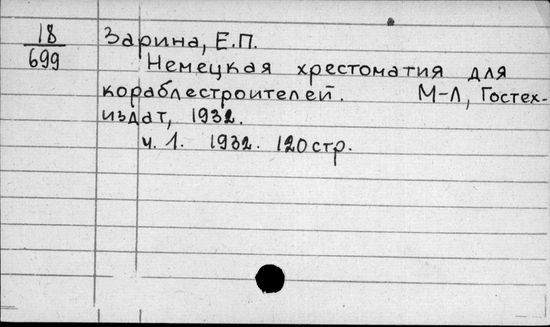 18
699
Зарина, Е.П.
Немецкая хрестоматия для
кораблестроителей. М-Л, Гостех-
издат, 1932.
ч. 1. 1932. 120 стр.